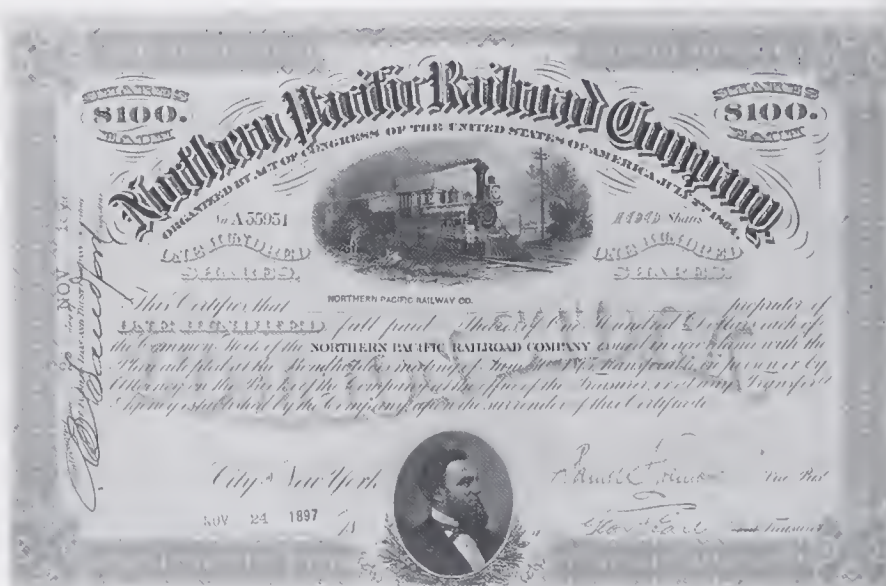 SHARES
$100.
EACH
SHARES
$100.
EACH
Northern Pacific Railroad Company,
ORGANIZED BY ACT OF CONGRESS OF THE UNITED STATES OF AMERICA, JULY 2ND 1864.
No A 55951
Shares
ONE HUNDRED
SHARES.
ONE HUNDRED
SHARES.
NORTHERN PACIFIC RAILWAY CO.
This Certifies that proprietor of
ONE HUNDRED full paid Shares of One Hundred Dollars each of
the Common Stock of the NORTHERN PACIFIC RAILROAD COMPANY issued in accordance with the
Plan adopted at the Bondholders meeting of June 30th 1875. Transferable in person or by
Attorney on the Books of the Company at the office of the Treasurer, or at any Transfer
Agency established by the Company, upon the surrender of this Certificate
City of New York
NOV 24 1897
Vice Prest
and Treasurer
NOV